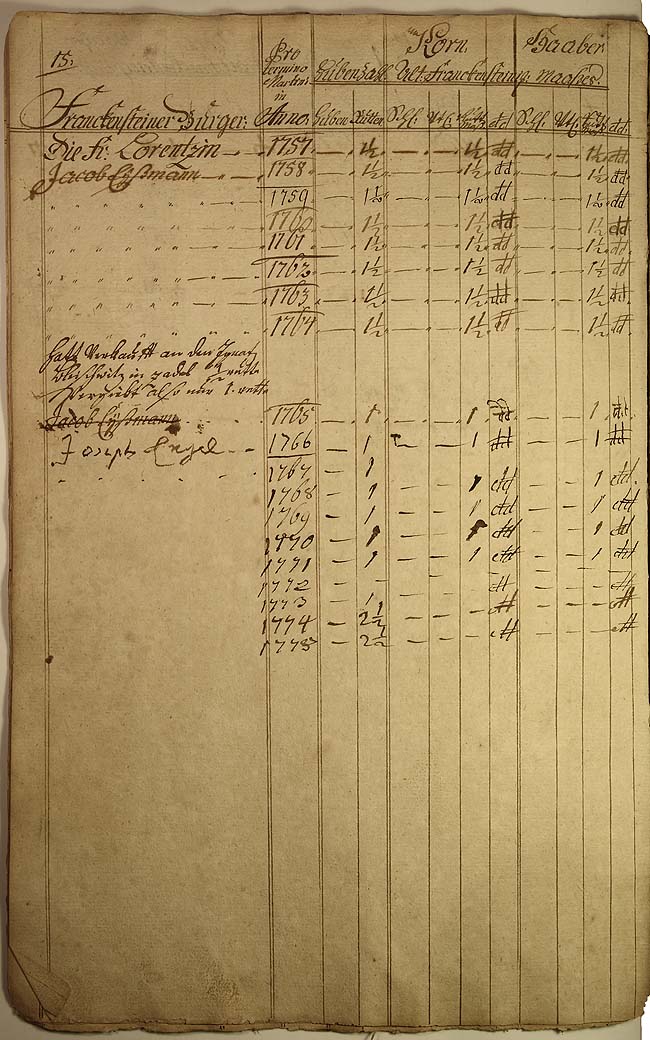 15.
Pro termino Martini in Anno.
Korn. Haaber
Huben Zahl. Alt Franckensteing. maaßes.
Franckensteiner Bürger: Anno. Huben Rutten Schfl.
Die Fr: Lorentzin 1757 1½ 1½ dd 1½ dd
Jacob Eyßmann 1758 1½ 1½ dd 1½ dd
" " " 1759 1½ 1½ dd 1½ dd
" " " 1760 1½ 1½ dd 1½ dd
" " " 1761 1½ 1½ dd 1½ dd
" " " 1762 1½ 1½ dd 1½ dd
" " " 1763 1½ 1½ dd 1½ dd
" " " 1764 1½ 1½ dd 1½ dd
hatt Verkaufft an den Ignatz
in Zadel ½ rutte
Vergiebt also nur 1. rutte
Jacob Eyßmann 1765 1 1 dd 1 dd
Joseph Engel 1766 1 1 dd 1 dd
1767 1
1768 1 1 dd 1 dd
1769 1 1 dd 1 dd
1770 1 1 dd 1 dd
1771 1 1 dd 1 dd
1772 dd dd
1773 1 dd dd
1774 2½ dd dd
1775 2½